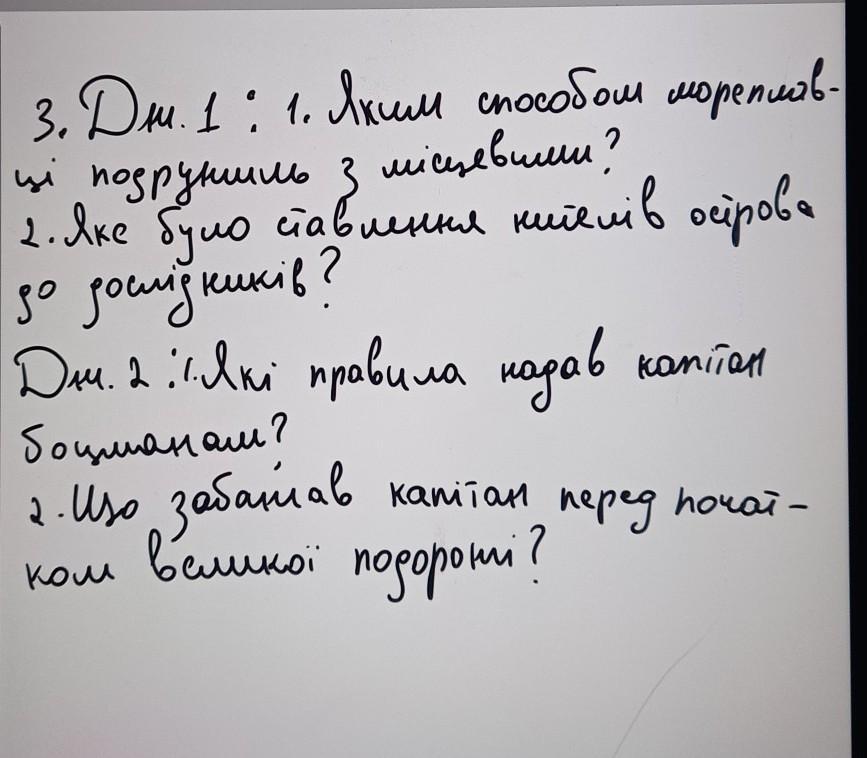 3. Дж. 1 : 1. Яким способом мореплав-
ці подружиль з місцевими?
2. Яке було ставлення жителів острова
до дослідників?
Дж. 2 : 1. Які правила надав капітан
боцманам?
2. Що забажав капітан перед почат-
ком великої подорожі?